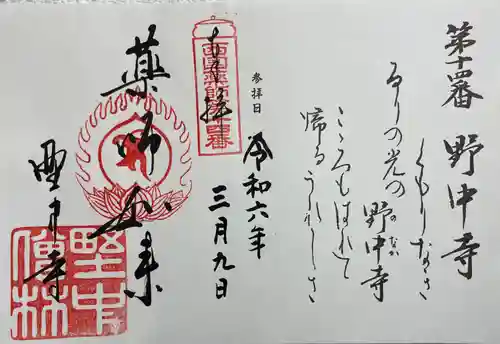 第十四番 野中寺
くもりなき
るりの光の 野中寺
のなか
こゝろもはれて
帰るうれしさ
参拝日
令和六年
三月九日
奉拝
西国薬師第十四番
薬師如来
野中寺
野中
僧林